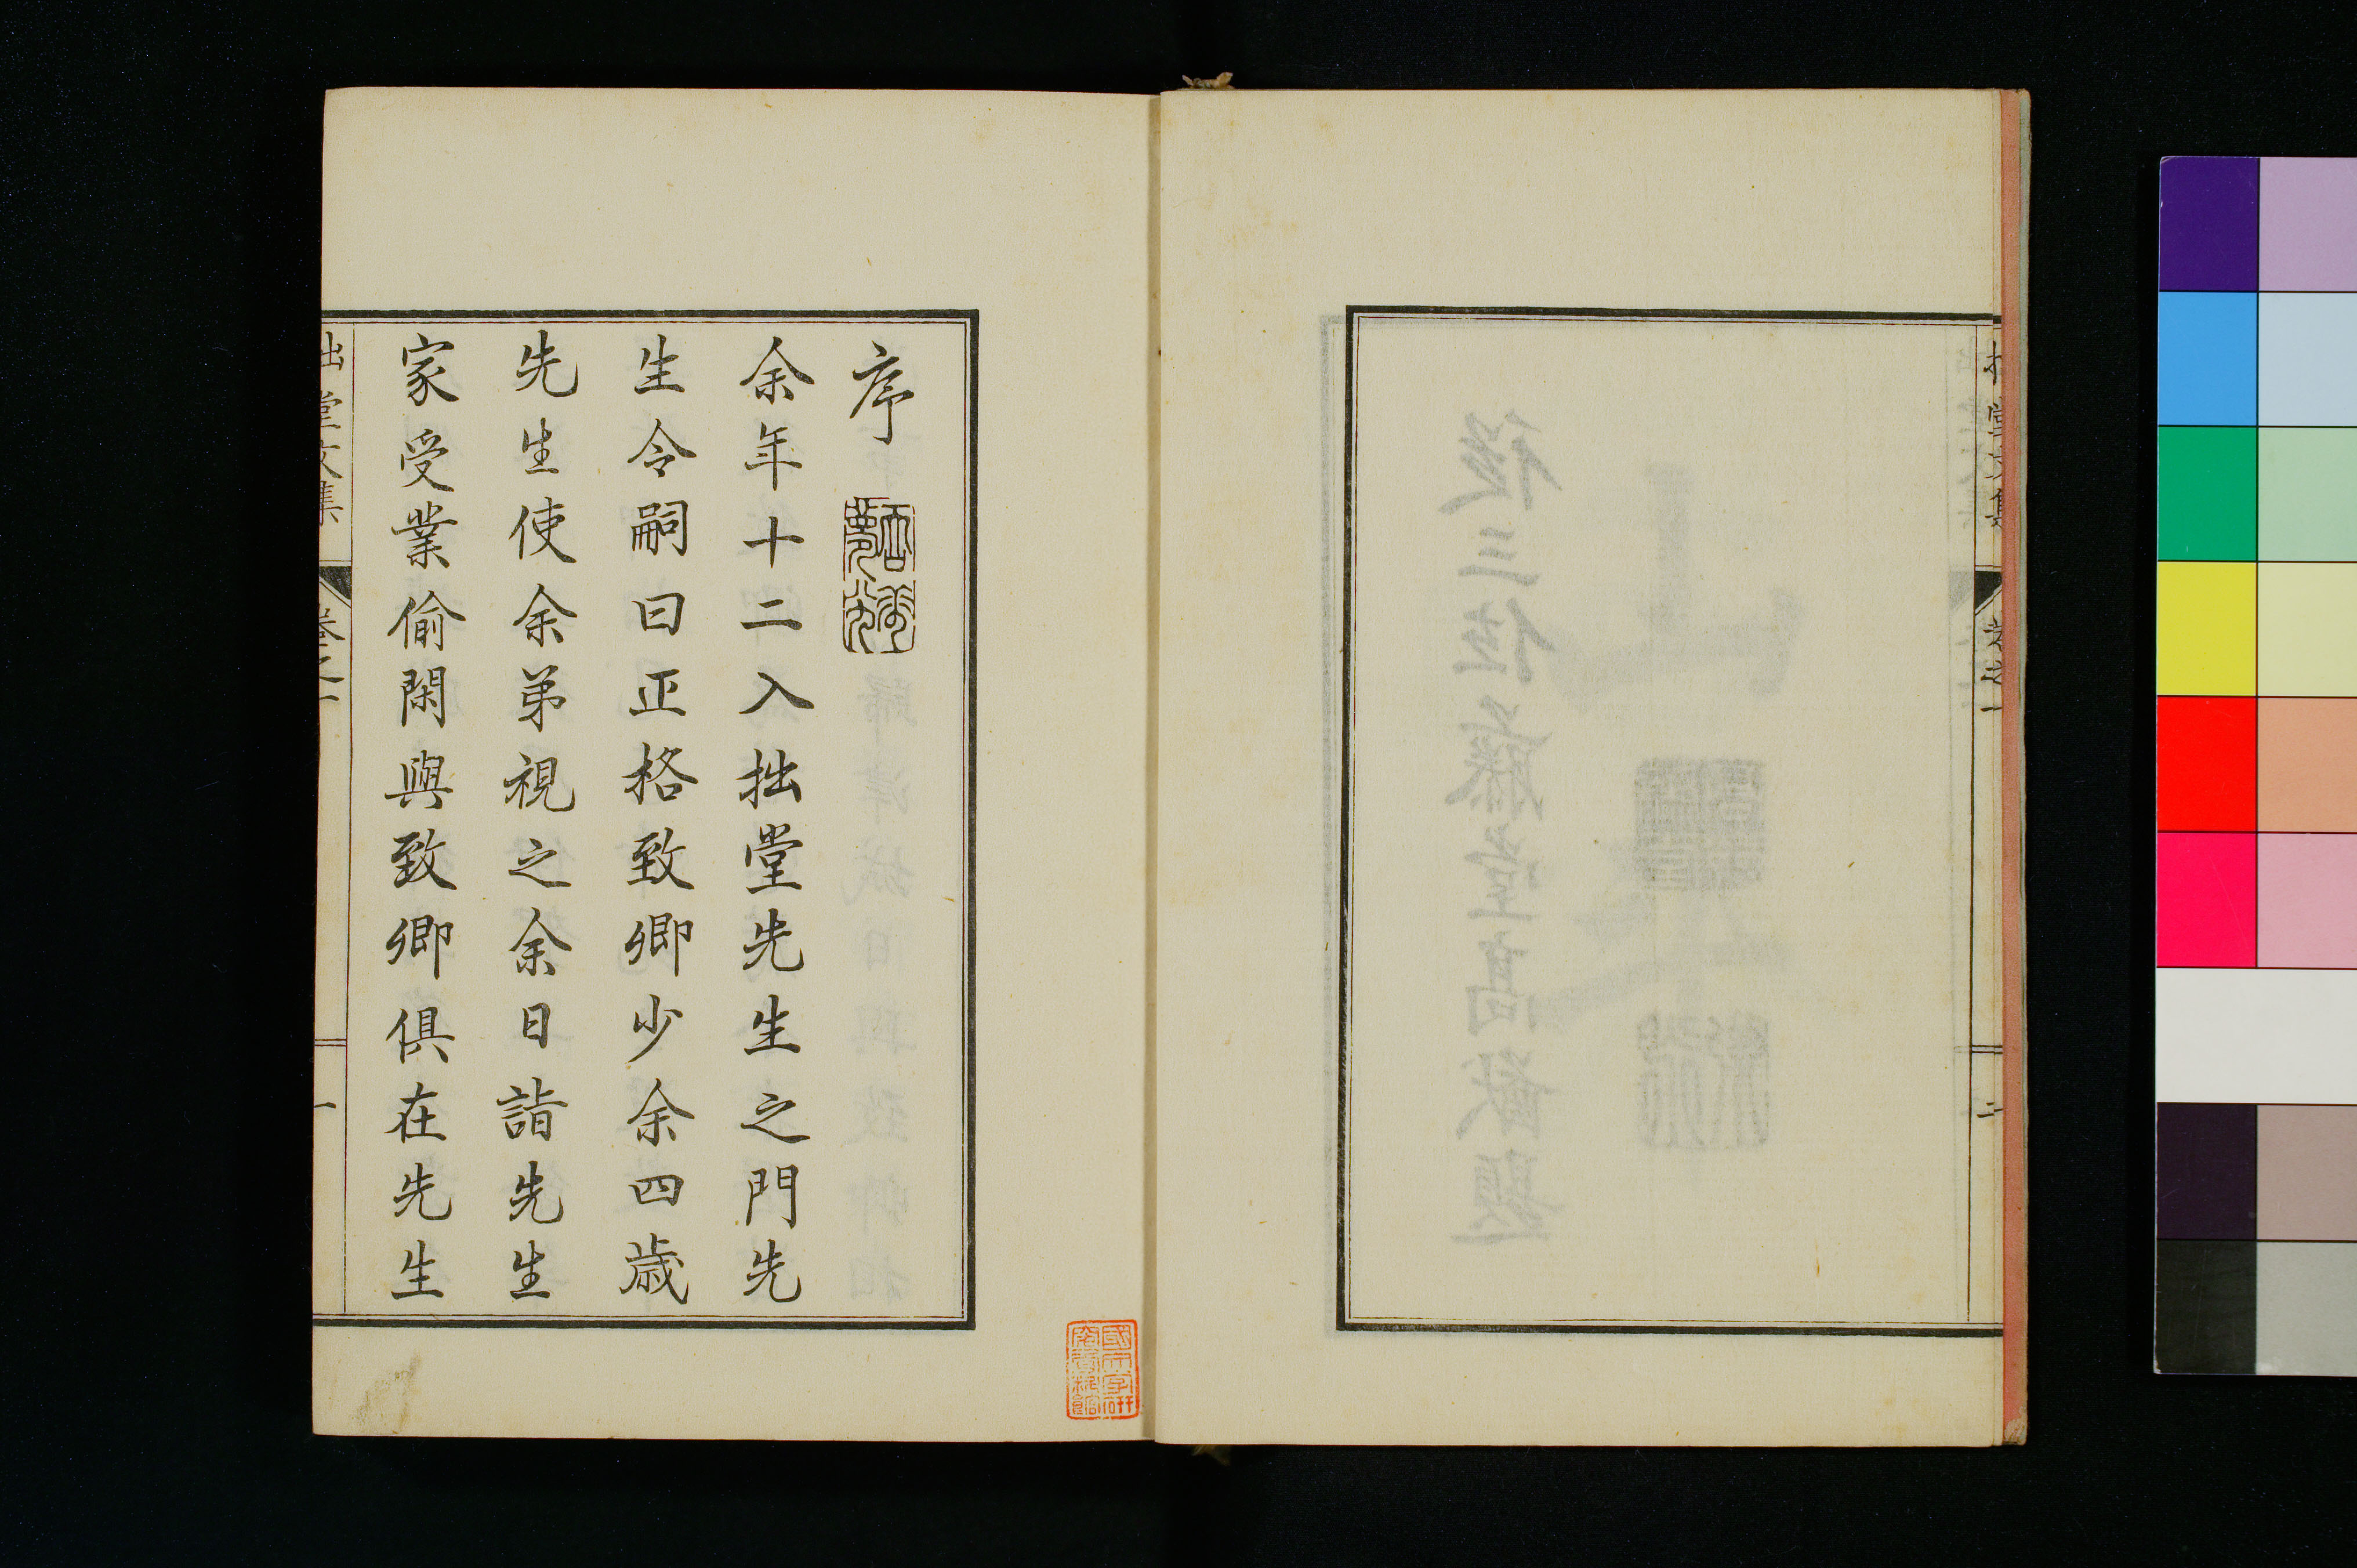 序
余年十二入拙堂先生之門先
生令嗣曰正格致卿少余四歳
先生使余弟視之余日詣先生
家受業偷閑與致卿俱在先生
拙堂文集
卷之一
一